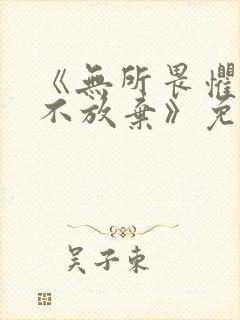 《無所畏懼
不放棄》免
吴子東